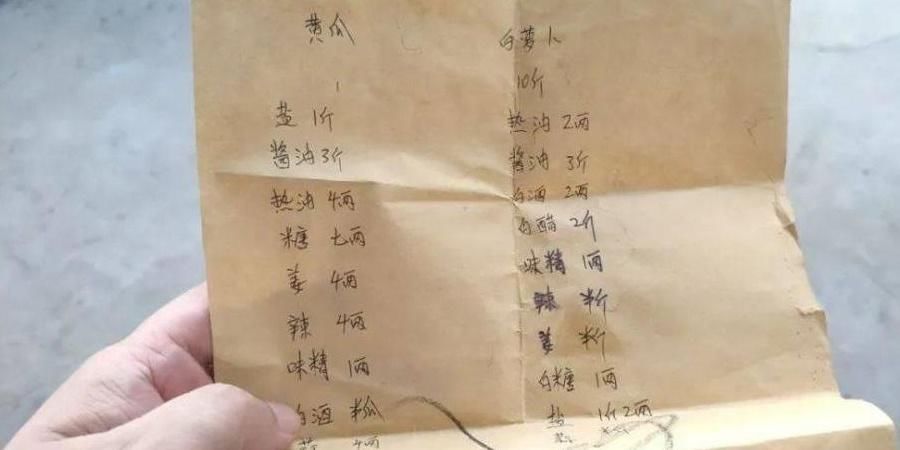 黄瓜
盐 1斤
酱油 3斤
热油 4两
糖 七两
姜 4两
辣 4两
味精 1两
白酒 半斤
4两
白萝卜
10斤
热油 2两
酱油 3斤
白酒 2两
白醋 2斤
味精 1两
辣 半斤
姜 半斤
白糖 1两
盐 1斤2两